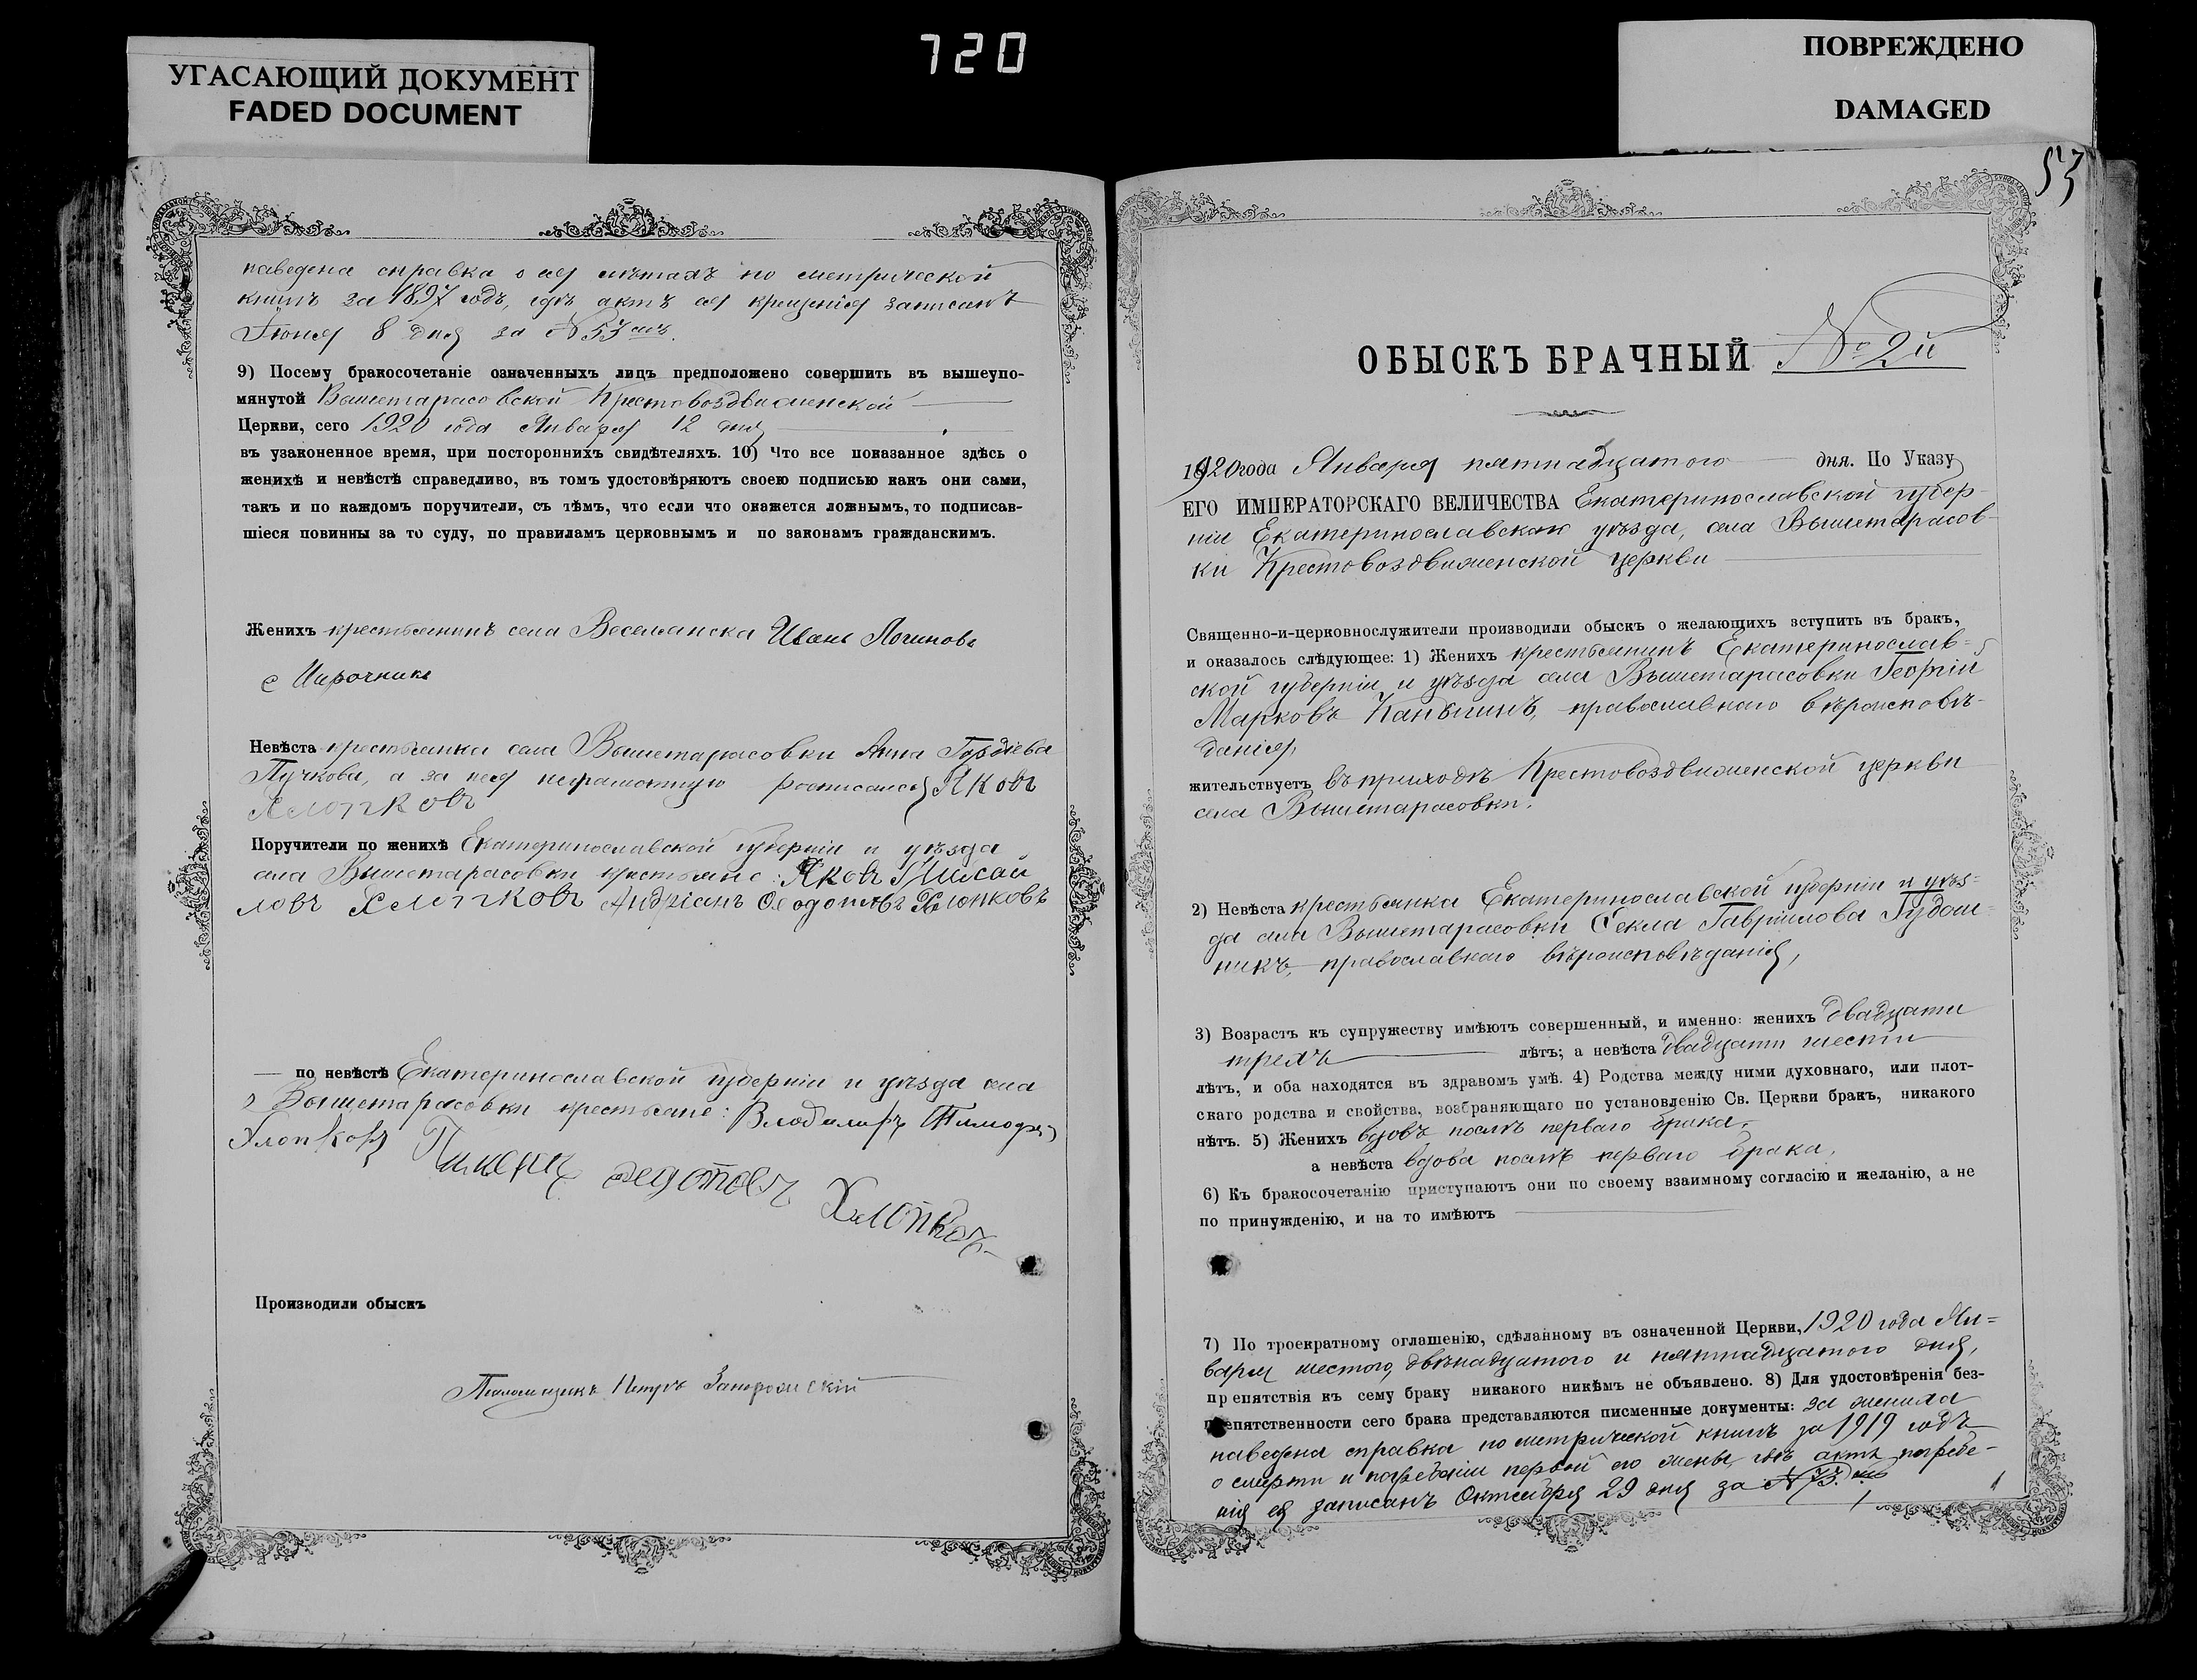 УГАСАЮЩИЙ ДОКУМЕНТ
FADED DOCUMENT
720
ПОВРЕЖДЕНО
DAMAGED
наведена справка о ея лѣтахъ по метрической
книгѣ за 1897 годъ, гдѣ актъ ея крещенія записанъ
Іюня 8 дня за № 53
9) Посему бракосочетаніе означенныхъ лицъ предположено совершить въ вышеупо-
мянутой Вышетарасовской Крестовоздвиженской
Церкви, сего 1920 года Января 12 дня
въ узаконенное время, при постороннихъ свидѣтеляхъ. 10) Что все показанное здѣсь о
женихѣ и невѣстѣ справедливо, въ томъ удостовѣряютъ своею подписью какъ они сами,
такъ и по каждомъ поручители, съ тѣмъ, что если что окажется ложнымъ, то подписав-
шіеся повинны за то суду, по правиламъ церковнымъ и по законамъ гражданскимъ.
Женихъ крестьянинъ села Веселянска Иванъ Логиновъ
Невѣста крестьянка села Вышетарасовки Анна Гордіева
Пучкова, а за нея неграмотную росписался Яковъ
Хлопковъ
Поручители по женихѣ Екатеринославской губерніи и уѣзда
села Вышетарасовки крестьяне: Яковъ Михай
ловъ Хлопковъ Андріанъ Хлопковъ
— по невѣстѣ Екатеринославской губерніи и уѣзда села
Вышетарасовки крестьяне: Владимиръ Тимоф
Хлопковъ
Федотовъ
Хлопковъ
Производили обыскъ
Псаломщикъ Петръ
53
ОБЫСКЪ БРАЧНЫЙ № 2й
1920 года Января пятнадцатого дня. По Указу
ЕГО ИМПЕРАТОРСКАГО ВЕЛИЧЕСТВА Екатеринославской губер-
ніи Екатеринославскаго уѣзда, села Вышетарасов-
ки Крестовоздвиженской церкви
Священно-и-церковнослужители производили обыскъ о желающихъ вступить въ бракъ,
и оказалось слѣдующее: 1) Женихъ крестьянинъ Екатеринослав-
ской губерніи и уѣзда села Вышетарасовки Георгій
Марковъ православнаго вѣроисповѣ-
данія,
жительствуетъ въ приходѣ Крестовоздвиженской церкви
села Вышетарасовки.
2) Невѣста крестьянка Екатеринославской губерніи и уѣз-
да села Вышетарасовки Ѳекла Гавріилова
никъ, православнаго вѣроисповѣданія,
3) Возрастъ къ супружеству имѣютъ совершенный, и именно: женихъ двадцати
трехъ лѣтъ; а невѣста двадцати шести
лѣтъ, и оба находятся въ здравомъ умѣ. 4) Родства между ними духовнаго, или плот-
скаго родства и свойства, возбраняющаго по установленію Св. Церкви бракъ, никакого
нѣтъ. 5) Женихъ вдовъ послѣ перваго брака,
а невѣста вдова послѣ перваго брака.
6) Къ бракосочетанію приступаютъ они по своему взаимному согласію и желанію, а не
по принужденію, и на то имѣютъ
7) По троекратному оглашенію, сдѣланному въ означенной Церкви, 1920 года Ян-
варя шестого, двѣнадцатого и пятнадцатого дня,
препятствія къ сему браку никакого никѣмъ не объявлено. 8) Для удостовѣренія без-
препятственности сего брака представляются писменные документы: за жениха
наведена справка по метрической книгѣ за 1919 годъ
о смерти и погребеніи первой его жены, гдѣ актъ погребе-
нія ея записанъ Октября 29 дня за № 73.